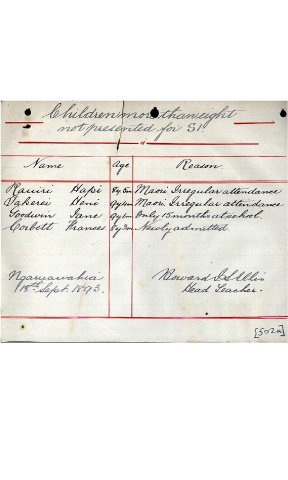 Children more than eight
not presented for S1.
Name Age Reason.
Rauiri Hapi 8y6m Maori Irregular attendance
Takerei Heni 9y4m Maori Irregular attendance
Goodwin Jane 9y1m Only 15 months at school.
Corbett Frances Newly admitted.
Ngaruawahia
18th Sept. 1893.
Howard
Head Teacher.
[502a]